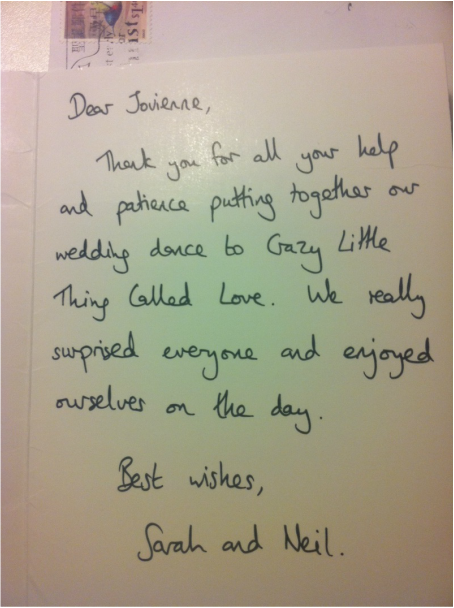 1st
Dear Jovienne,
Thank you for all your help
and patience putting together our
wedding dance to Crazy Little
Thing Called Love. We really
surprised everyone and enjoyed
ourselves on the day.
Best wishes,
Sarah and Neil.